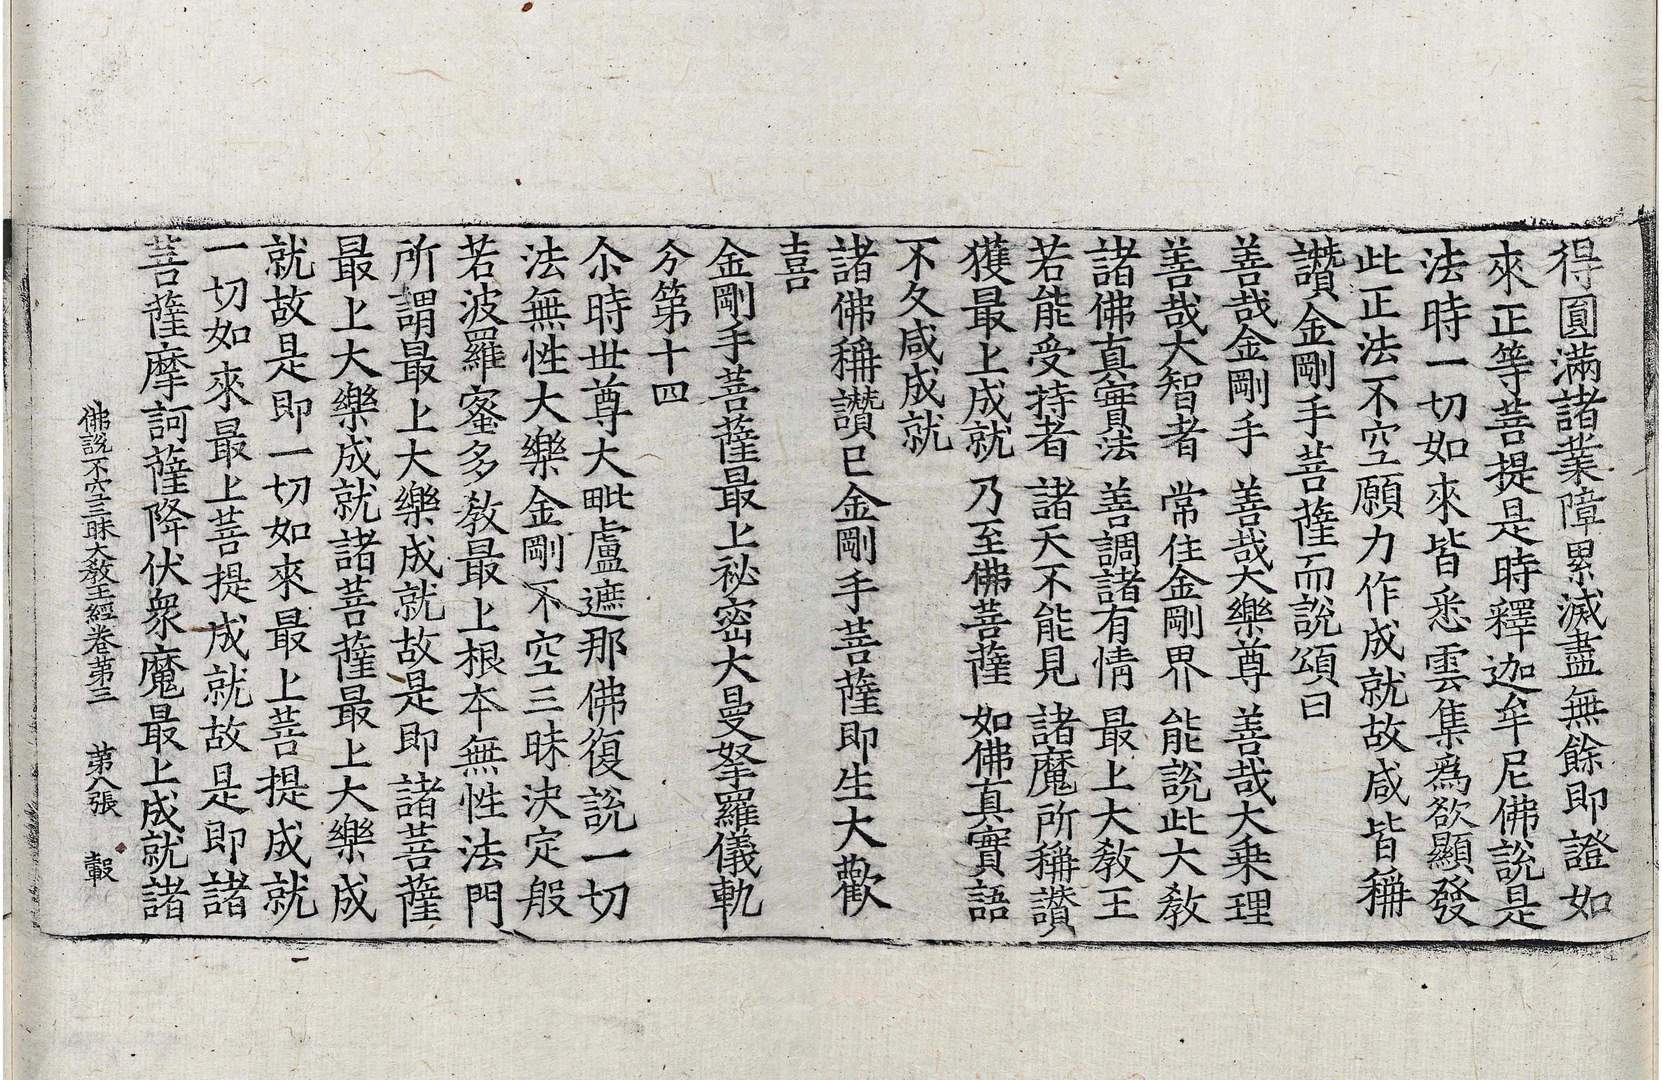 得圓滿諸業障累滅盡無餘即證如
來正等菩提是時釋迦牟尼佛說是
法時一切如來皆悉雲集爲欲顯發
此正法不空願力作成就故咸皆稱
讚金剛手菩薩而說頌曰
善哉金剛手 善哉大樂尊 善哉大乘理
善哉大智者 常住金剛界 能說此大教
諸佛真實法 善調諸有情 最上大教王
若能受持者 諸天不能見 諸魔所稱讚
獲最上成就 乃至佛菩薩 如佛真實語
不久咸成就
諸佛稱讚已金剛手菩薩即生大歡
喜
金剛手菩薩最上祕密大曼拏羅儀軌
分第十四
尒時世尊大毗盧遮那佛復說一切
法無性大樂金剛不空三昧決定般
若波羅蜜多教最上根本無性法門
所謂最上大樂成就故是即諸菩薩
最上大樂成就諸菩薩最上大樂成
就故是即一切如來最上菩提成就
一切如來最上菩提成就故是即諸
菩薩摩訶薩降伏衆魔最上成就諸
佛說不空三昧大教王經卷第三 第八張 轂